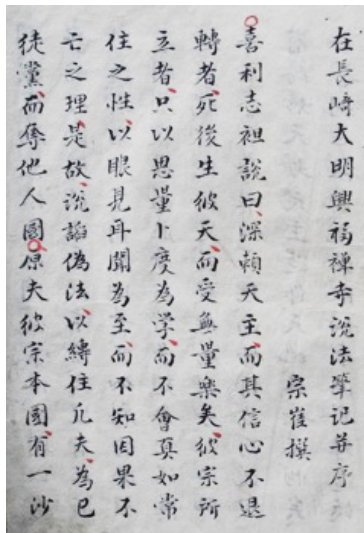 在長崎大明興福禪寺說法筆記并序
宗崔撰
喜利志袒說曰深頼天主而其信心不退
轉者死後生彼天而受無量樂矣彼宗所
立者只以思量卜度為学而不會真如常
住之性以眼見耳聞為至而不知因果不
亡之理是故說謟偽法以縛住凢夫為己
徒黨而奪他人國原夫彼宗本国有一沙